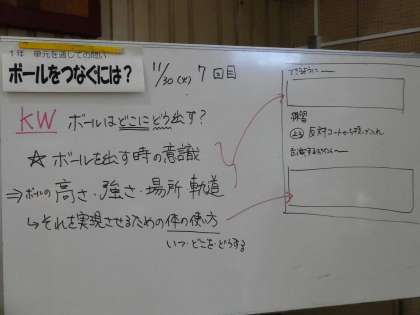 1年 単元を通しての問い
ボールをつなぐには?
11/30(火) 7回目
KW ボールはどこにどう出す?
☆ボールを出す時の意識
⇒ボールの高さ・強さ・場所・軌道
↳それを実現させるための体の使い方
いつ・どこを・どうする
練習
反対コートから